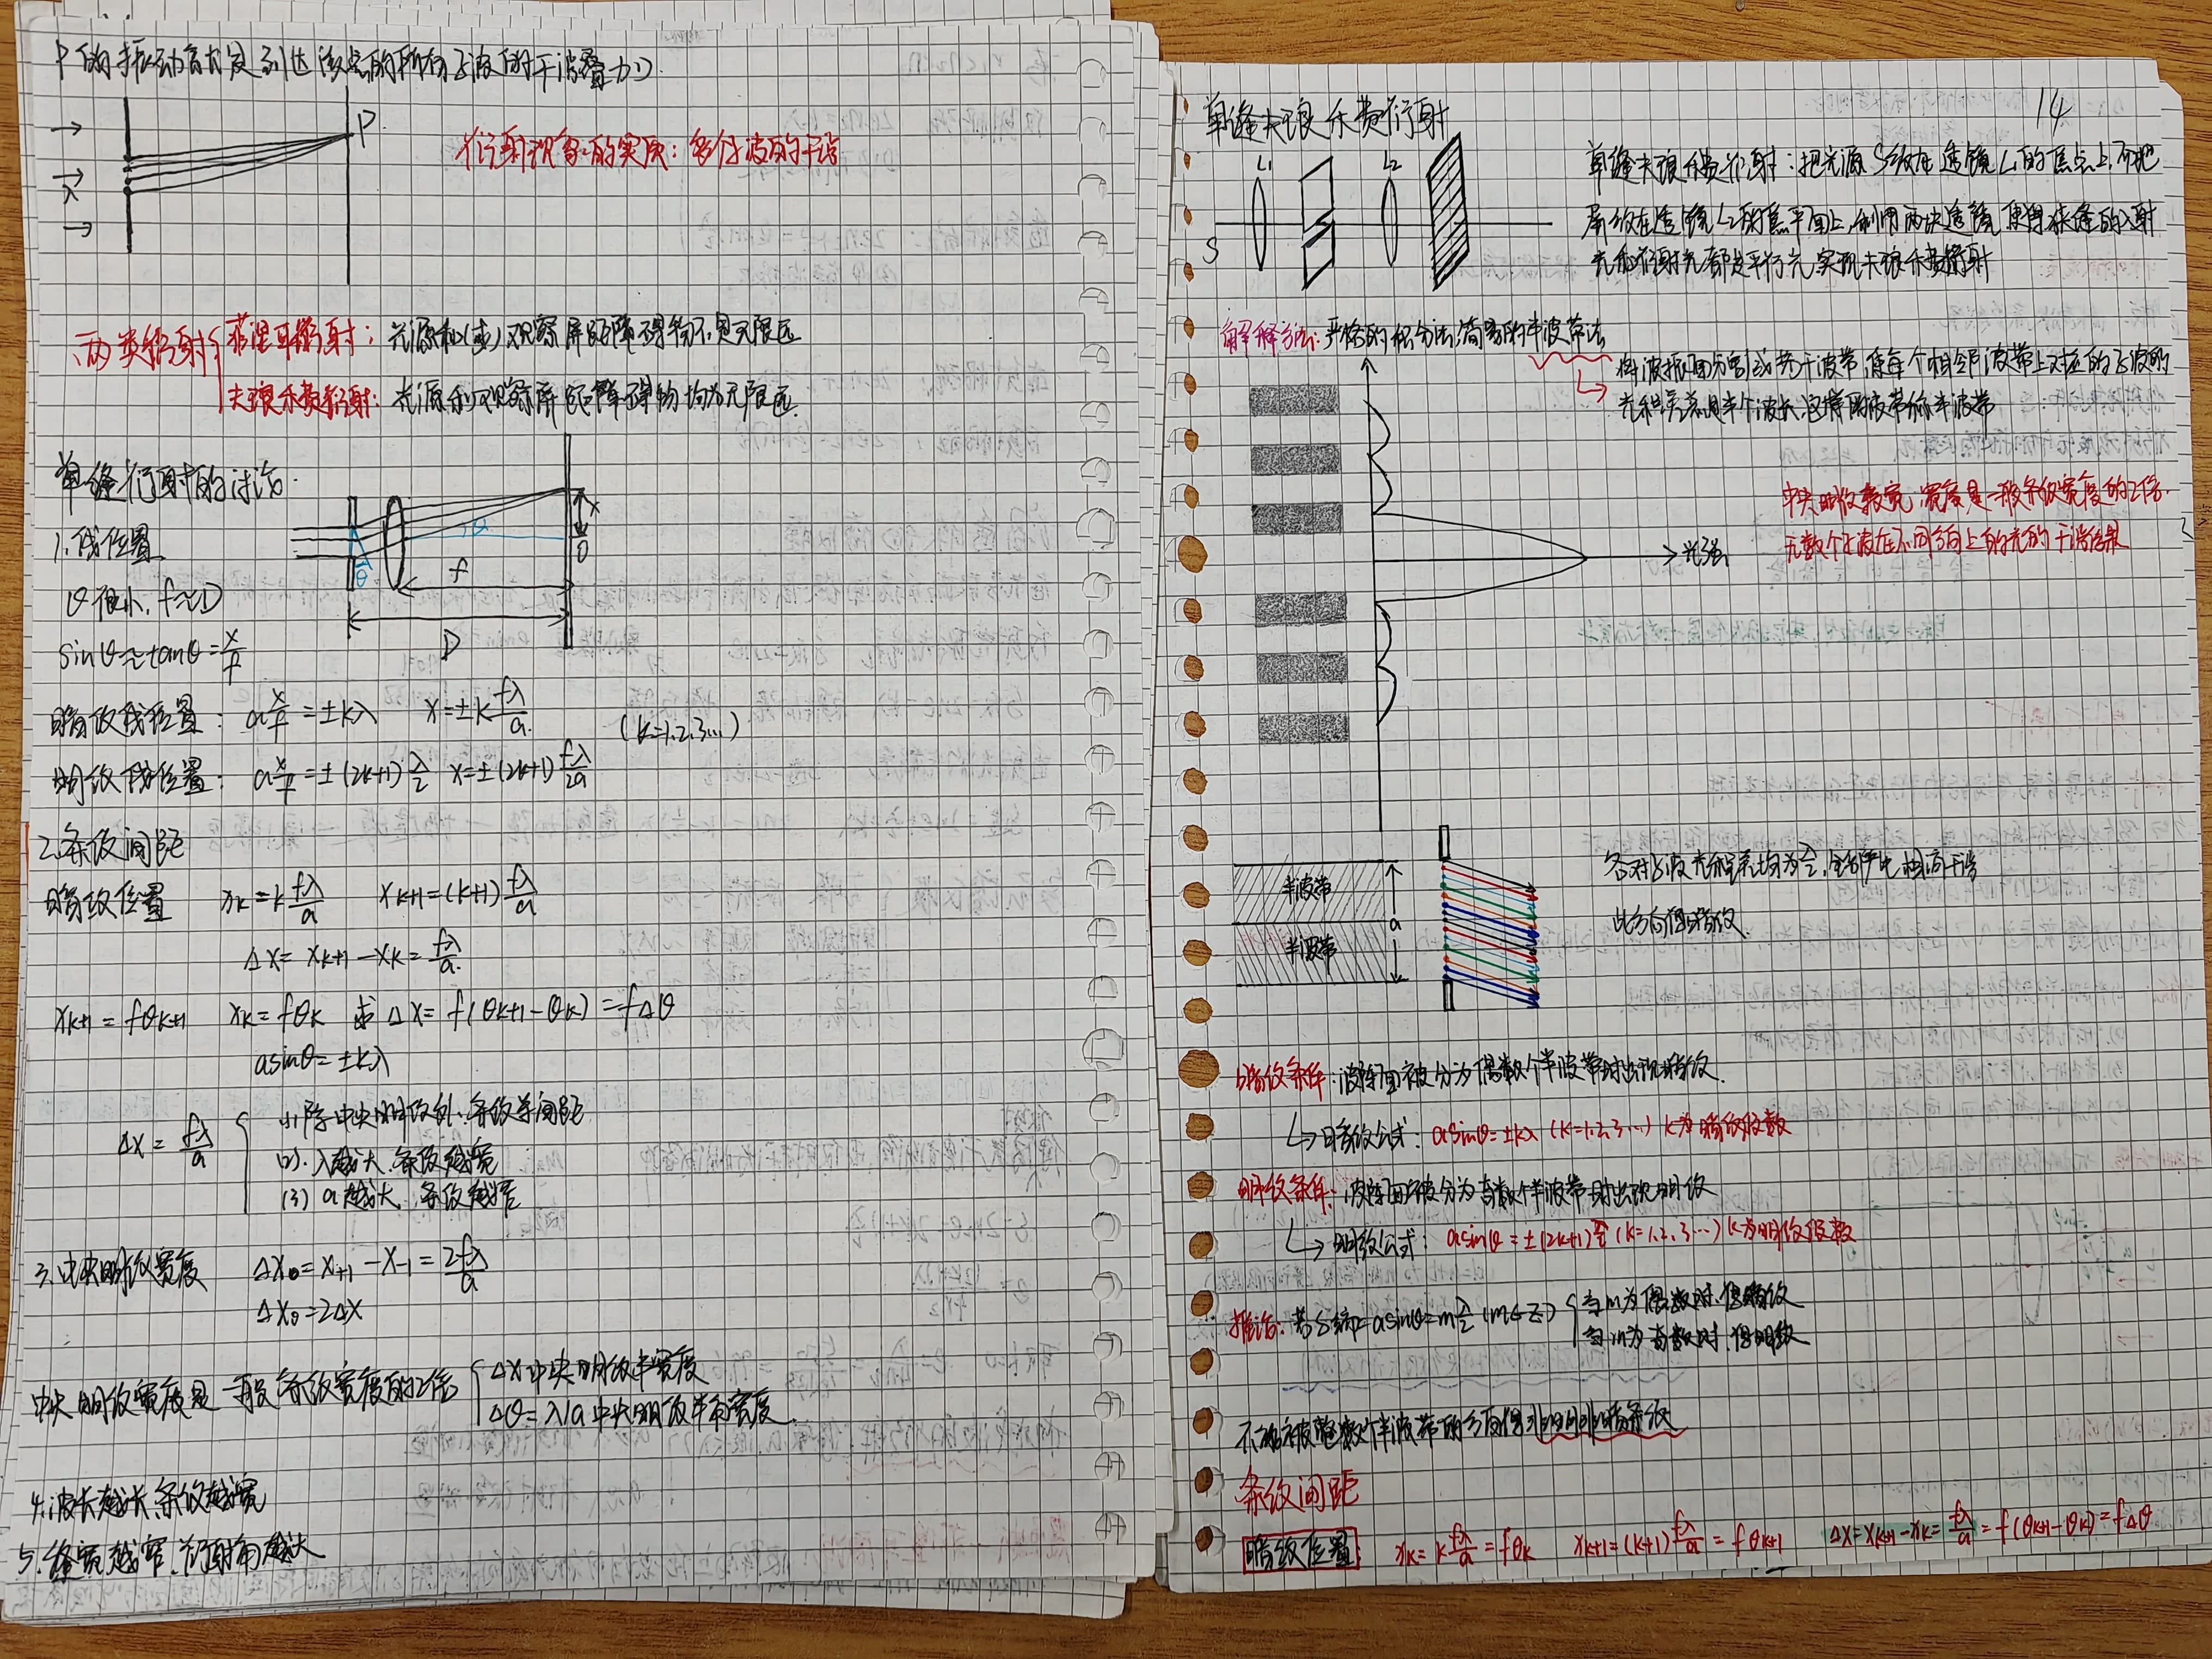 P的振动合成是到达该点的所有子波的干涉叠加
P
λ
衍射现象的实质：多个子波的干涉
两类衍射
菲涅耳衍射：光源和(或)观察屏距障碍物不是无限远
夫琅禾费衍射：光源和观察屏距障碍物均为无限远.
单缝衍射的讨论.
1.线位置
θ
θ
f
D
x
0
θ很小, f≈D
sinθ≈tanθ=x/f
暗纹线位置： a x/f=±kλ x=±k fλ/a. (k=1.2.3…)
明纹线位置： a x/f=±(2k+1)λ/2 x=±(2k+1)fλ/2a
2.条纹间距
暗纹位置 xk=k fλ/a xk+1=(k+1)fλ/a
Δx=xk+1-xk=fλ/a.
xk+1=fθk+1 xk=fθk Δx=f(θk+1-θk)=fΔθ
asinθ=±kλ
Δx=fλ/a
(1)除中央明纹外.条纹等间距
(2).λ越大.条纹越宽
(3) a越大.条纹越窄
3.中央明纹宽度 Δx0=x+1-x-1=2fλ/a
Δx0=2Δx
中央明纹宽度是一般条纹宽度的2倍
Δx中央明纹半宽度
Δθ=λ/a中央明纹半角宽度.
4.波长越长,条纹越宽
5.缝宽越窄.衍射角越大
14
单缝夫琅禾费衍射
L1
L2
S
单缝夫琅禾费衍射：把光源S放在透镜L1的焦点上,而把
屏放在透镜L2的焦平面上,利用两块透镜,使得狭缝的入射
光和衍射光都是平行光,实现夫琅禾费衍射
解释方法:严格的积分法;简易的半波带法
将波振面分割成若干波带,使每个相邻波带上对应的子波的
光程差总是半个波长.这样的波带称半波带
中央明纹最宽,宽度是一般条纹宽度的2倍.
无数个子波在不同方向上的光的干涉结果
光强
半波带
半波带
a
各对子波光程差均为λ/2,全部产生相消干涉
此方向得暗纹.
暗纹条件:波阵面被分为偶数个半波带时出现暗纹.
暗纹公式: asinθ=±kλ (k=1.2.3…) k为暗纹级数
明纹条件：波阵面被分为奇数个半波带时出现明纹
明纹公式: asinθ=±(2k+1)λ/2 (k=1.2.3…) k为明纹级数
推论:若 asinθ=mλ/2 (m∈Z)
当m为偶数时.得暗纹
当m为奇数时.得明纹
半波带的方向得非明非暗条纹
条纹间距
暗纹位置 xk=k fλ/a=fθk xk+1=(k+1)fλ/a=fθk+1 Δx=xk+1-xk=fλ/a=f(θk+1-θk)=fΔθ